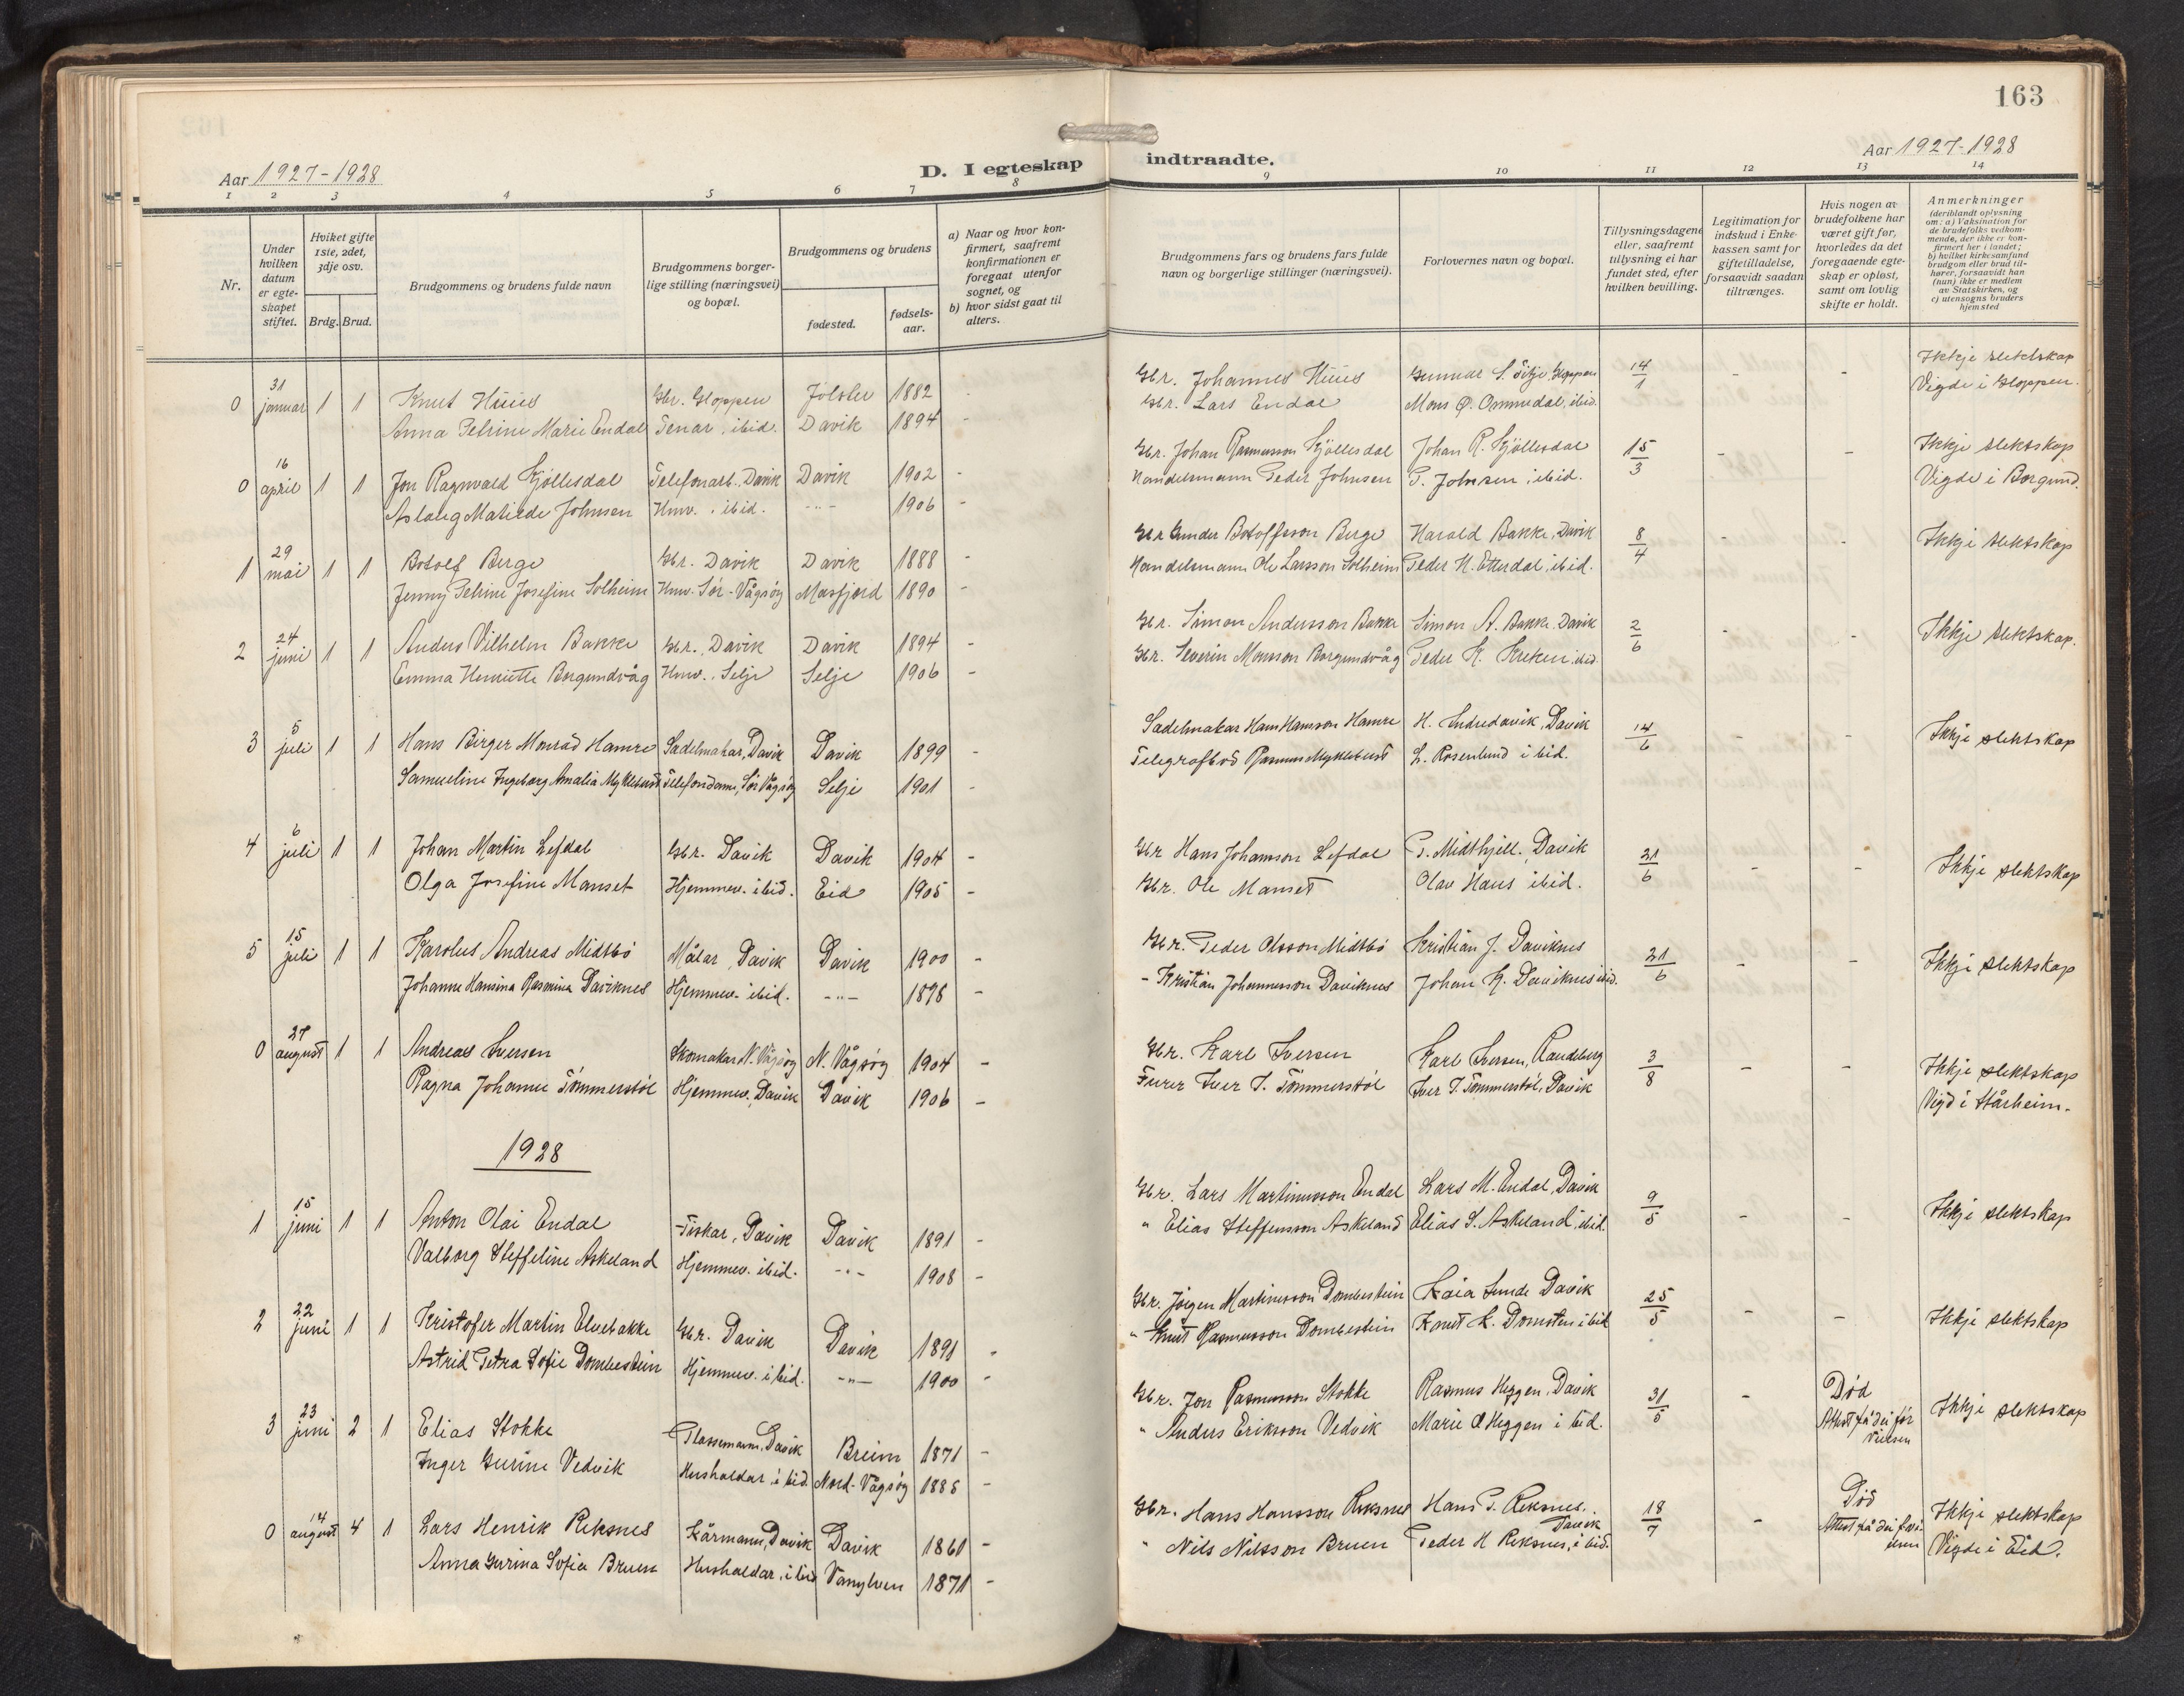 163
Aar 1927-1928
D. I egteskap
indtraadte.
Aar 1927-1928
1 2 3 4 5 6 7 8 9 10 11 12 13 14
Nr.
Under hvilken datum er egte-skapet stiftet.
Hviket gifte 1ste, 2det, 3dje osv.
Brdg. Brud.
Brudgommens og brudens fulde navn
Brudgommens borger-lige stilling (næringsvei) og bopæl.
Brudgommens og brudens
fødested.
fødsels-aar.
a) Naar og hvor kon-firmert, saafremt konfirmationen er foregaat utenfor sognet, og
b) hvor sidst gaat til alters.
Brudgommens fars og brudens fars fulde navn og borgerlige stillinger (næringsvei).
Forlovernes navn og bopæl.
Tillysningsdagene eller, saafremt tillysning ei har fundet sted, efter hvilken bevilling.
Legitimation for indskud i Enke-kassen samt for giftetilladelse, forsaavidt saadan tiltrænges.
Hvis nogen av brudefolkene har været gift før, hvorledes da det foregaaende egte-skap er opløst, samt om lovlig skifte er holdt.
Anmerkninger
(deriblandt oplysning om: a) Vaksination for de brudefolks vedkom-mende, der ikke er kon-firmert her i landet; b) hvilket kirkesamfund brudgom eller brud til-hører, forsaavidt han (hun) ikke er medlem av Statskirken, og c) utensogns bruders hjemsted
0 31 januar 1 1 Knut Huus Gbr. Gloppen Jölster 1882 - Gbr. Johannes Huus Gunnar S. Gloppen 14/1 - - Ikkje slektskap
Anna Petrine Marie Endal Tenar, ibid. Davik 1894 - Gbr. Lars Endal Mons Ø. Ommedal, ibid. Vigde i Gloppen.
0 16 april 1 1 Jon Ragnvald Hjöllesdal Telefonarb. Davik Davik 1902 - Gbr. Johan Rasmusson Hjöllesdal Johan R. Hjöllesdal 15/3 - - Ikkje slektskap
Aslaug Matilde Johnsen Hmv. ibid. -"- 1906 - Handelsmann Peder Johnsen P. Johnsen, ibid. Vigde i Borgund.
1 29 mai 1 1 Botolf Berge Gbr. Davik Davik 1888 - Gbr Botolfsson Berge Harald Bakke, Davik 8/4 - - Ikkje slektskap
Jenny Petrine Josefine Solheim Hmv. Sör-Vågsöy Masfjord 1890 - Handelsmann Ole Larsson Solheim Peder H. Etterdal, ibid.
2 24 juni 1 1 Anders Vilhelm Bakke Gbr., Davik Davik 1894 - Gbr. Simon Andersson Bakke Simon A. Bakke, Davik 2/6 - - Ikkje slektskap.
Emma Henriette Borgundvåg Hmv. Selje Selje 1906 - Gbr. Severin Monsson Borgundvåg Peder K. Kreken ibid.
3 5 juli 1 1 Hans Birger Monrad Hamre Sadelmakar, Davik Davik 1899 - Sadelmakar Hans Hansson Hamre H. Indredavik, Davik 14/6 - - Ikkje slektskap
Samueline Ingeborg Amalia Myklebust Telefondame, Sör Vågsöy Selje 1901 - Telegrafbod Rasmus Myklebust L. Rosenlund ibid.
4 6 juli 1 1 Johan Martin Lefdal Gbr. Davik Davik 1904 - Gbr Hans Johansson Lefdal P. Midthjell, Davik 21/6 - - Ikkje slektskap
Olga Josefine Manset Hjemmev. ibid. Eid 1905 - Gbr. Ole Manset Olav Haus ibid.
5 15 juli 1 1 Karolus Andreas Midtbö Målar, Davik Davik 1900 - Gbr. Peder Olsson Midtbö Kristian J. Daviknes 21/6 - - Ikkje slektskap
Johanne Hansina Rasmina Daviknes Hjemmev. ibid. -"- 1898 - - Kristian Johannesson Daviknes Johan K. Daviknes ibid.
0 27 august 1 1 Andreas Iversen Skomakar N. Vågsöy N. Vågsöy 1904 - Gbr. Karl Iversen Karl Iversen, Raudeberg 3/8 - - Ikkje slektskap
Ragna Johanne Tömmerstöl Hjemmev. Davik Davik 1906 - Furer Iver T. Tömmerstöl Iver T. Tömmerstöl, Davik Vigd i Stårheim.
1928
1 15 juni 1 1 Anton Olai Endal Fiskar, Davik Davik 1891 - Gbr. Lars Martinusson Endal Lars M. Endal, Davik 9/5 - - Ikkje slektskap
Valborg Steffeline Askeland Hjemmev. ibid. -"- 1908 - " Elias Steffensson Askeland Elias S. Askeland, ibid.
2 22 juni 1 1 Kristofer Martin Elvebakke Gbr. Davik Davik 1891 - Gbr. Jörgen Martinusson Dombestein Kaia Sunde Davik 25/5 - - Ikkje slektskap
Astrid Petra Sofie Dombestein Hjemmev. ibid. -"- 1900 - " Knut Rasmusson Dombestein Knut R. Domsten ibid
3 23 juni 2 1 Elias Stokke Plassmann, Davik Breim 1871 - Gbr. Jon Rasmusson Stokke Rasmus Heggen, Davik 31/5 - Död Attest på dei för vielsen Ikkje slektskap
Inger Gurine Vedvik Hushaldar ibid. Nord-Vågsöy 1888 - " Anders Eriksson Vedvik Marie Heggen ibid.
0 14 august 4 1 Lars Henrik Reksnes Kårmann, Davik Davik 1861 - Gbr. Hans Hansson Reksnes Hans P. Reksnes, Davik 18/7 - Död Attest på dei Ikkje slektskap
Anna Gurina Sofia Bruen Hushaldar, ibid Vanylven 1871 - " Nils Nilsson Bruen Peder H Reksnes, ibid. Vigde i Eid.